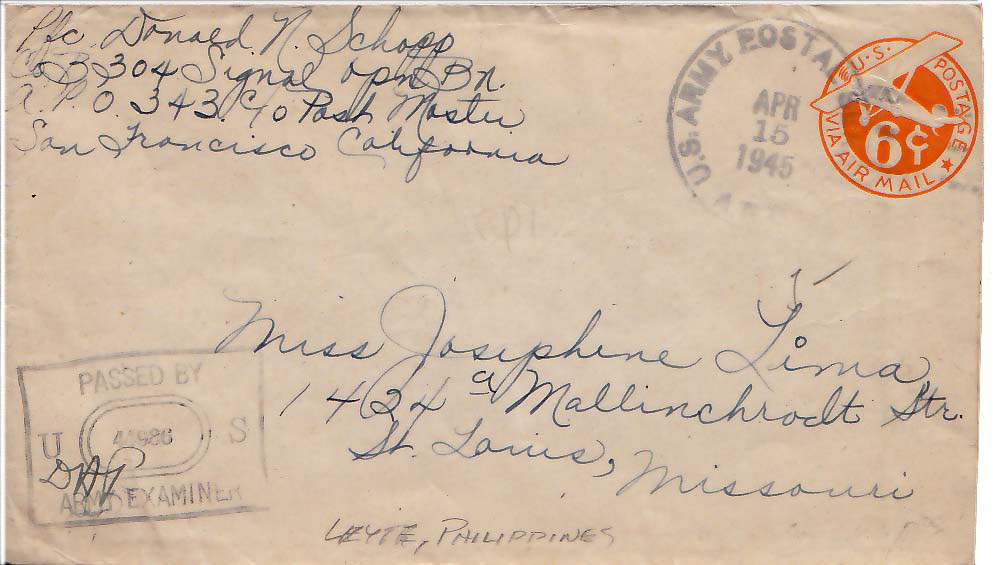 Pfc. Donald. N. Schopp
Co B 304 Signal opn Bn.
A. P. O. 343 c/o Post Master
San Francisco California
U.S. ARMY POSTAL
APR
15
1945
U.S. POSTAGE
6¢
VIA AIR MAIL
Miss Josephine Lima
1424 a Mallinchrodt Str.
St. Louis, Missouri
PASSED BY
U S
ARMY EXAMINER
LEYTE, PHILIPPINES